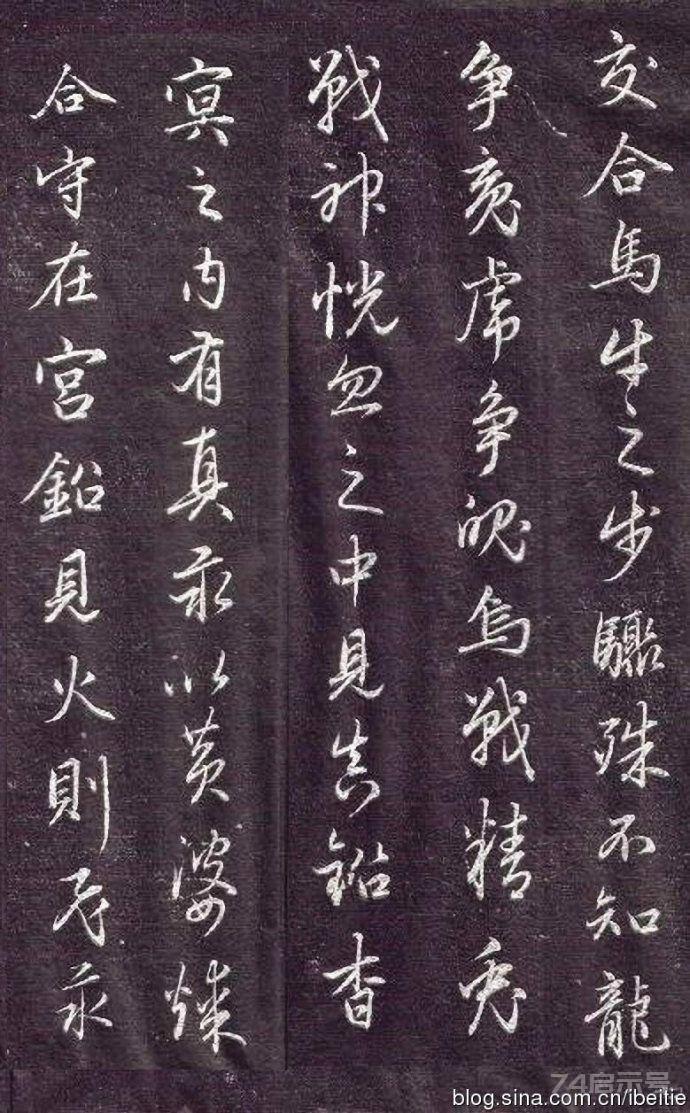 交合馬牛之步驟殊不知龍
争魂虎争魄烏戰精兎
戰神恍忽之中見真鉛杳
冥之内有真汞以黄婆媒
合守在宫鉛見火則飛汞
74启示号
blog.sina.com.cn/ibeitie